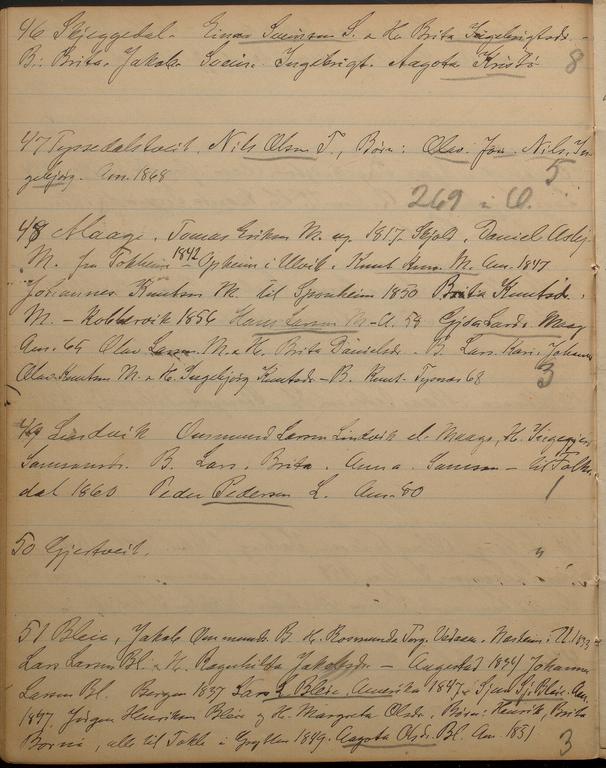 46 Skjeggedal. Einar Sveinson S. & K. Brita Ingebrigtsdr. -
B: Brita, Jakob, Svein, Ingebrigt, Aagota Kristi 8
47 Tyssedalstveit. Nils Olson T., Børn: Olav. Jon. Nils. In-
gebjørg. Am. 1868 5
269 i O.
48 Maage. Tomas Erikson M. og 1817. Skjold. Daniel Aslej
M. fra Tokheim 1842 Opheim i Ulvik. Knut Knu. M. Am. 1847
Johannes Knutson M. til Sponheim 1850 Brita Knutsdr.
M. - Kobbervik 1856 Hans Larson M. - A. 58 Gjøa Larsdr. Maag
Am. 65 Olav Larson M. & K. Brita Danielsdr. B. Lars. Kari. Johann
Olav Knutson M. & K. Ingebjørg Knutsdr - B. Knut. Tysnæs 68 3
49 Lindvik Aamund Larson Lindvik el. Maage, K.
Samsonsdr. B. Lars, Brita, Anna, Samson - til Folke
dal 1860 Peder Pederson L. Am. 80 1
50 Gjestveit. "
51 Bleie, Jakob Aamunds. B. K. Rosmunda Torg. U. 1833
Lars Larson Bl. & K. Ragnhilda Jakobsdr - Augestad 1834 Johannes
Larson Bl. Bergen 1837 Lars L. Bleie, Amerika 1847 & Sjur Sj. Bleie. Am.
1847. Jørgen Henrikson Bleie og K. Margreta Olsdr. Børn: Henrik, Brita
Borni, alle til Takle i Gryten 1849. Aagota Olsdr. Bl. Am. 1851 3